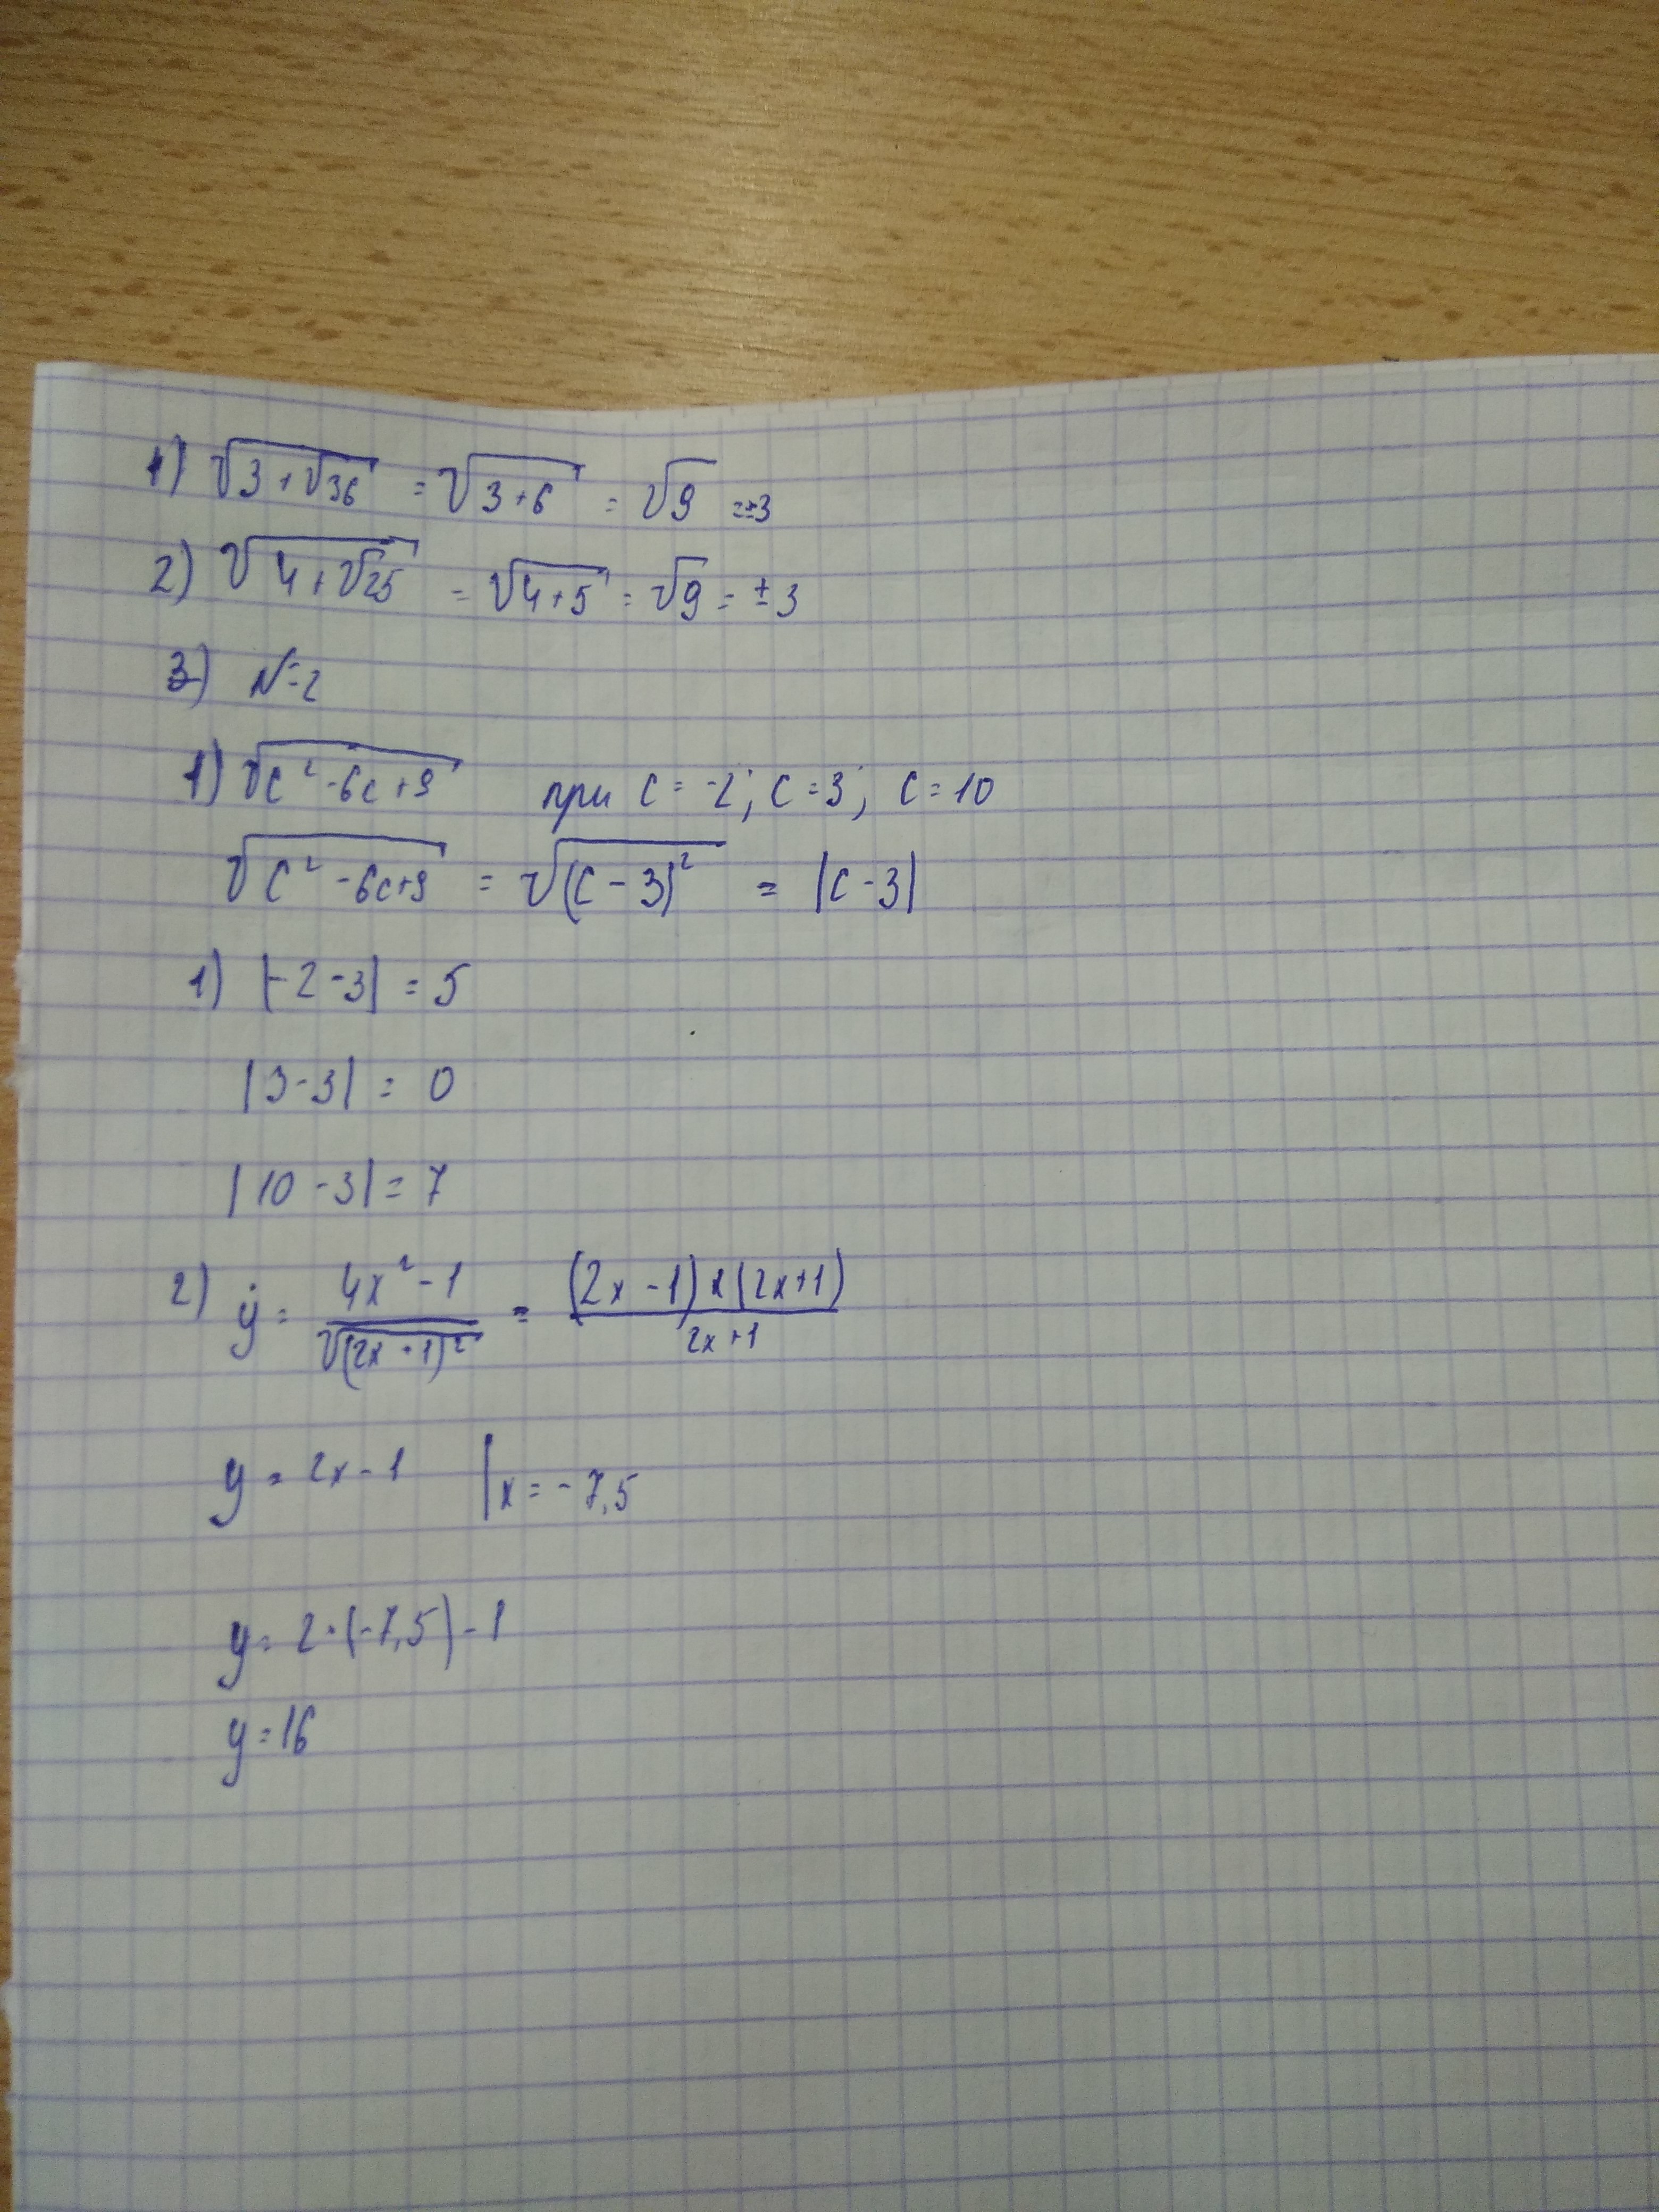 1) √(3+√36) = √(3+6) = √9 = ±3
2) √(4+√25) = √(4+5) = √9 = ±3
3) N=2
1) √(c²-6c+9) при c = -2; c=3; c=10
√(c²-6c+9) = √((c-3)²) = |c-3|
1) |-2-3| = 5
|3-3| = 0
|10-3| = 7
2) y = (4x²-1)/√((2x+1)²) = ((2x-1)×(2x+1))/(2x+1)
y = 2x-1 | x = -7,5
y = 2·(-7,5)-1
y = 16